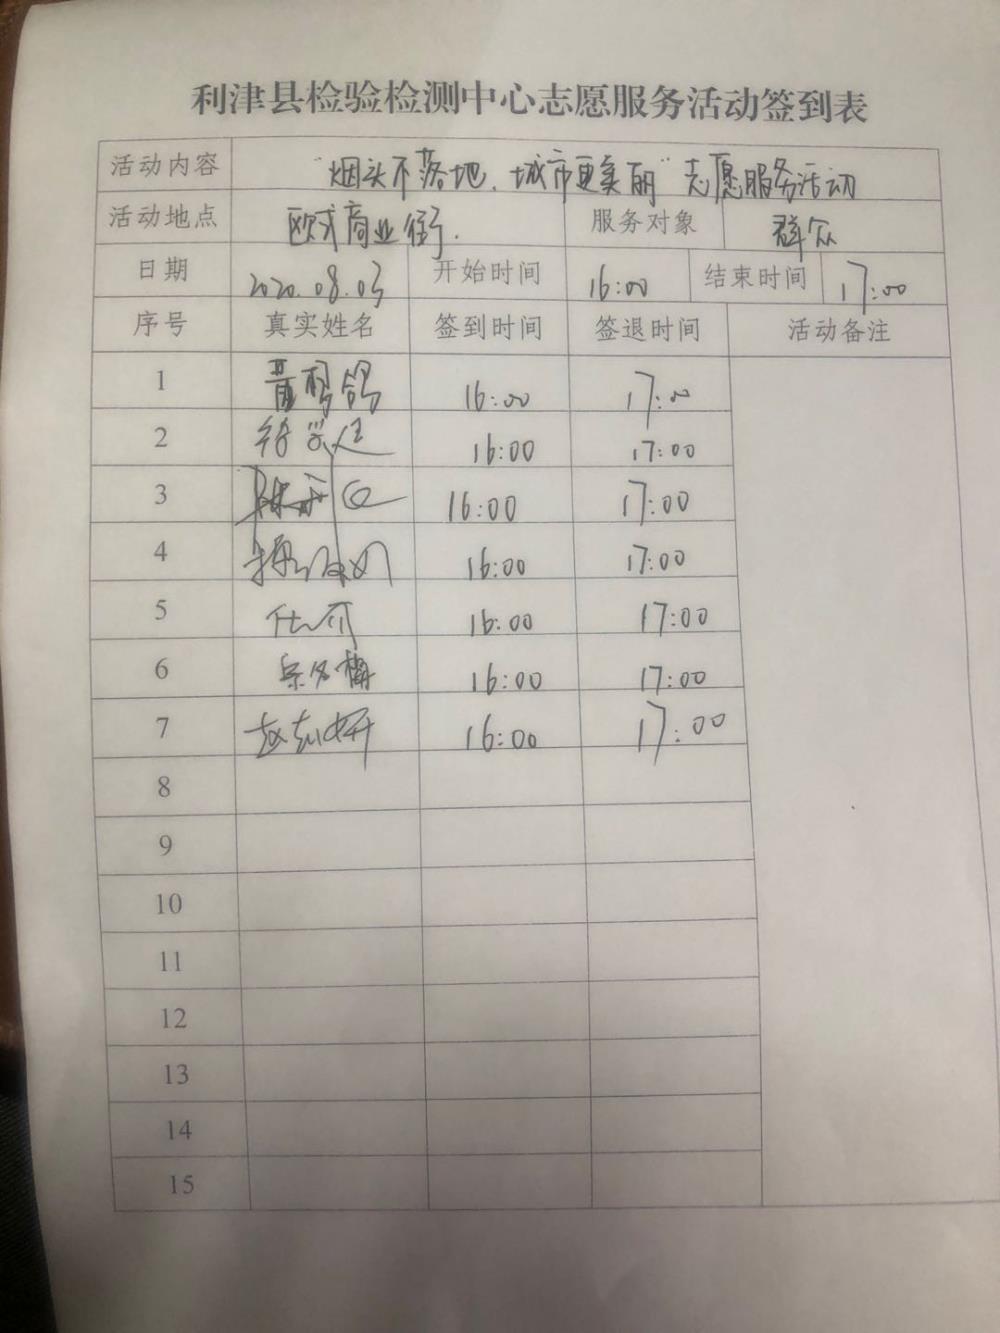 利津县检验检测中心志愿服务活动签到表
活动内容 "烟头不落地，城市更美丽"志愿服务活动
活动地点 欧式商业街. 服务对象 群众
日期 2020.08.03 开始时间 16:00 结束时间 17:00
序号 真实姓名 签到时间 签退时间 活动备注
1 16:00 17:00
2 16:00 17:00
3 16:00 17:00
4 16:00 17:00
5 16:00 17:00
6 16:00 17:00
7 16:00 17:00
8
9
10
11
12
13
14
15